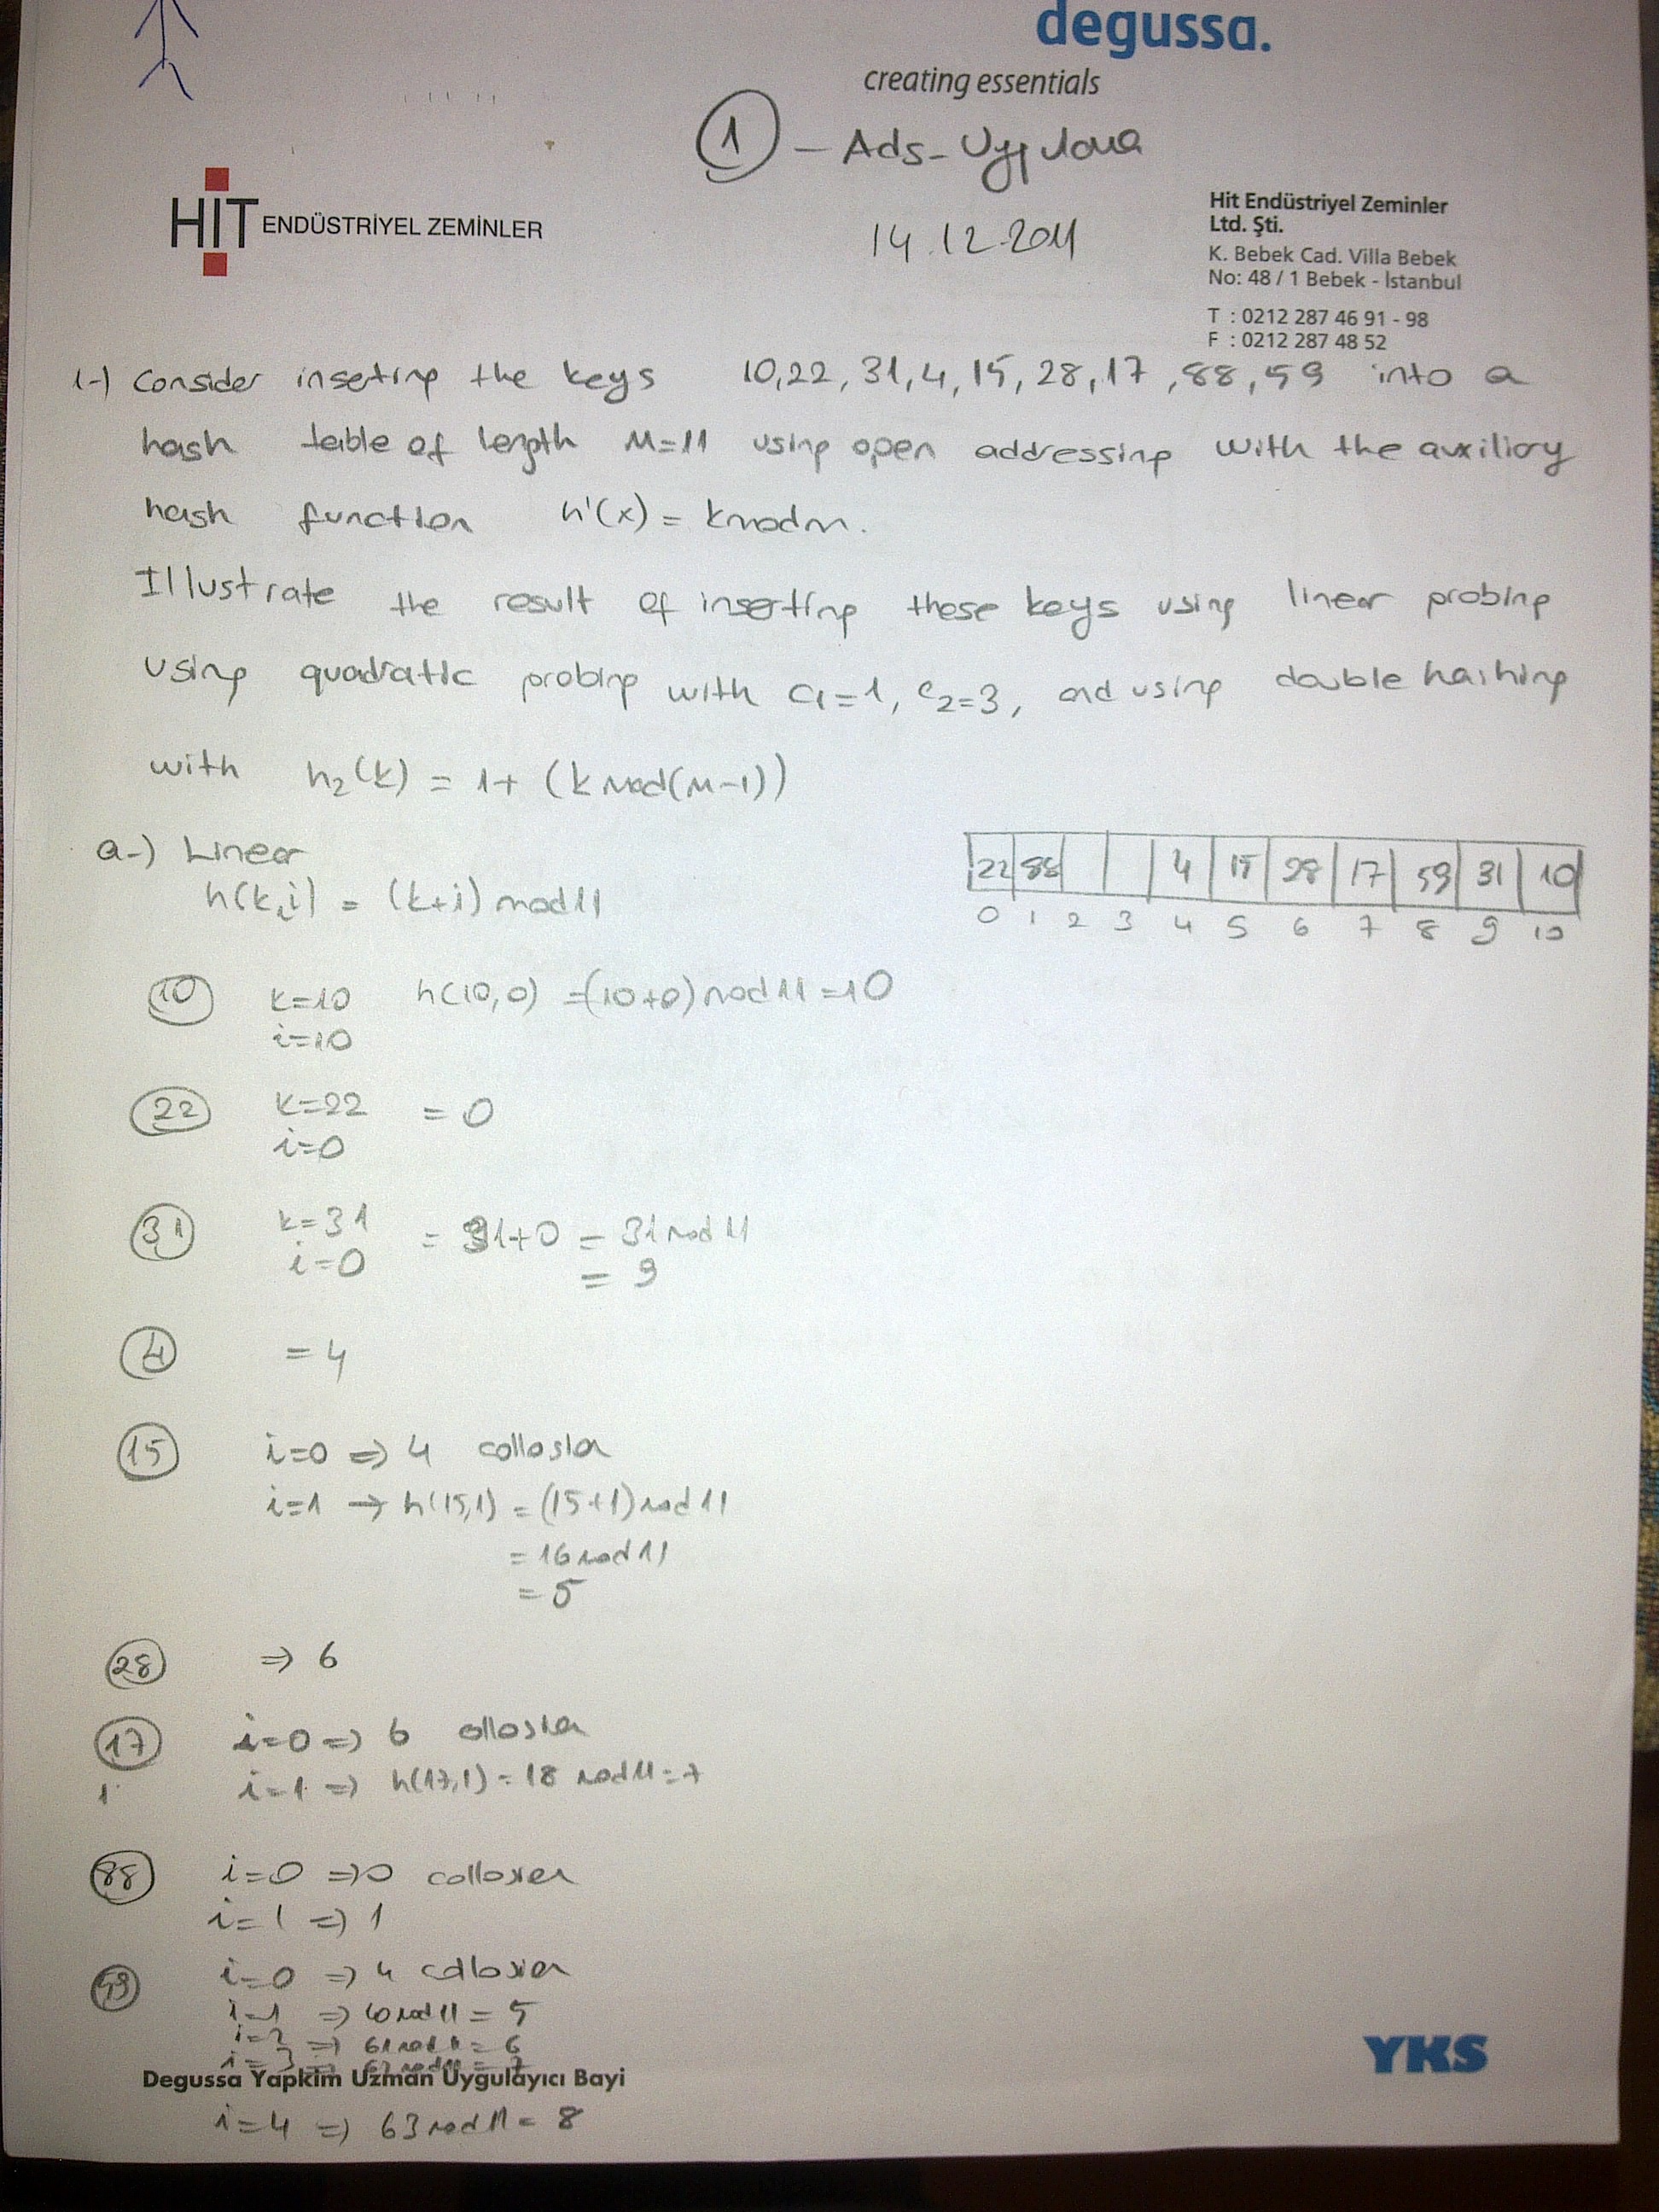 degussa.
creating essentials
1 - Ads - Uygulama
HİT ENDÜSTRİYEL ZEMİNLER
14.12.2011
Hit Endüstriyel Zeminler
Ltd. Şti.
K. Bebek Cad. Villa Bebek
No: 48 / 1 Bebek - İstanbul
T : 0212 287 46 91 - 98
F : 0212 287 48 52
1-) Consider inseting the keys 10,22,31,4,15,28,17,88,59 into a
hash table of length M=11 using open addressing with the auxiliary
hash function h'(x) = k mod m.
Illustrate the result of inserting these keys using linear probing
using quadratic probing with c1=1, c2=3, and using double hashing
with h2(k) = 1+ (k mod(m-1))
a-) Linear
h(k,i) = (k+i) mod 11
22 88 4 15 28 17 59 31 10
0 1 2 3 4 5 6 7 8 9 10
10 k=10 h(10,0) =(10+0) mod 11 =10
i=10
22 k=22 = 0
i=0
31 k=31 = 31+0 = 31 mod 11
i=0 = 9
4 = 4
15 i=0 => 4 collosion
i=1 → h(15,1) = (15+1) mod 11
= 16 mod 11
= 5
28 => 6
17 i=0 => 6 collosion
i=1 => h(17,1) = 18 mod 11 = 7
88 i=0 =>0 collosion
i=1 => 1
59 i=0 => 4 collosion
i=1 => 60 mod 11 = 5
i=2 => 61 mod 11 = 6
i=3 => 62 mod 11 = 7
Degussa Yapkim Uzman Uygulayıcı Bayi
i=4 => 63 mod 11 = 8
YKS